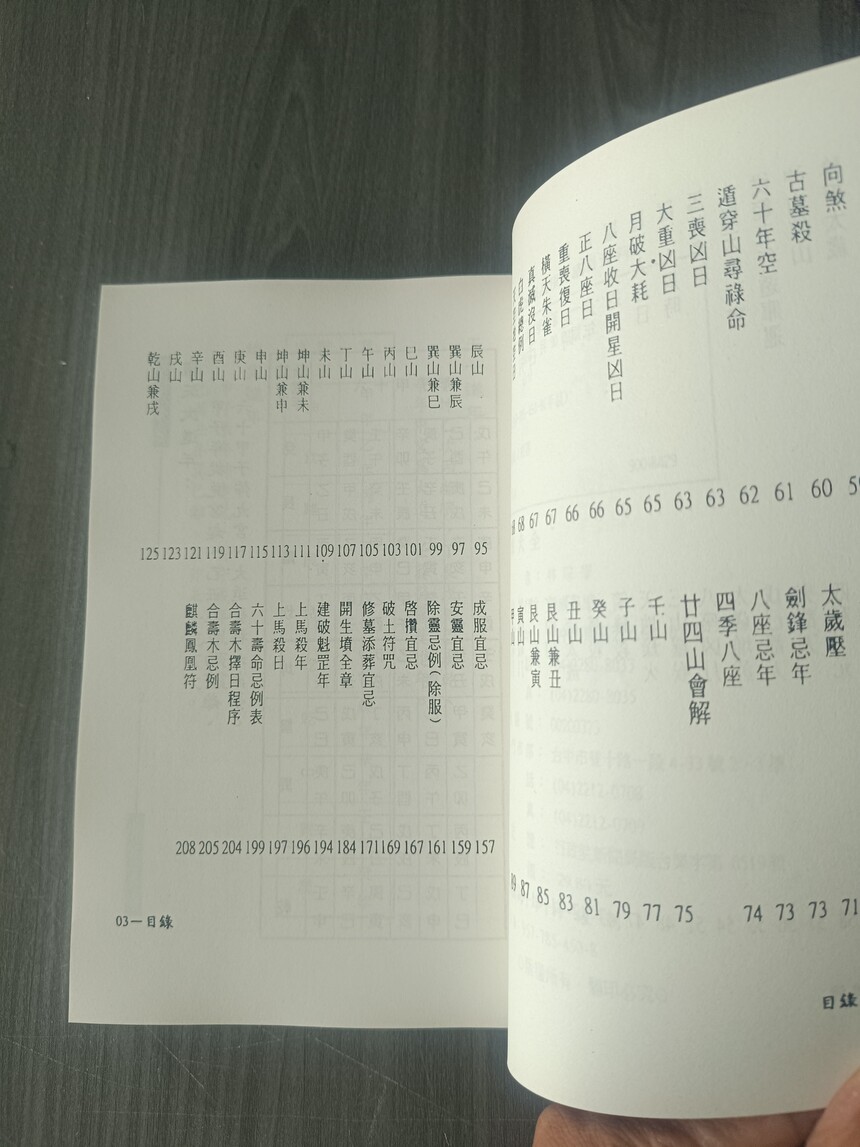 向煞 59
古墓殺 60
六十年空 61
遁穿山尋祿命 62
三喪凶日 63
大重凶日 63
月破大耗 65
八座收日開星凶日 65
正八座日 66
重喪復日 66
橫天朱雀 67
真滅沒日 67
白虎總例 68
太歲壓 71
劍鋒忌年 73
八座忌年 73
四季八座 74
廿四山會解
壬山 75
子山 77
癸山 79
丑山 81
艮山兼丑 83
艮山兼寅 85
寅山 87
甲山 89
目錄
辰山 95
巽山兼辰 97
巽山兼巳 99
巳山 101
丙山 103
午山 105
丁山 107
未山 109
坤山兼未 111
坤山兼申 113
申山 115
庚山 117
酉山 119
辛山 121
戌山 123
乾山兼戌 125
成服宜忌 157
安靈宜忌 159
除靈忌例(除服) 161
啓攢宜忌 167
破土符咒 169
修墓添葬宜忌 171
開生墳全章 184
建破魁罡年 194
上馬殺年 196
上馬殺日 197
六十壽命忌例表 199
合壽木擇日程序 204
合壽木忌例 205
麒麟鳳凰符 208
03—目錄